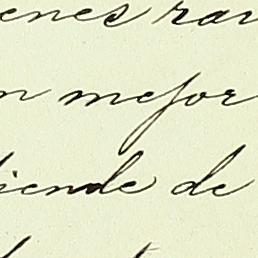 enes rar
n mejor
iende de